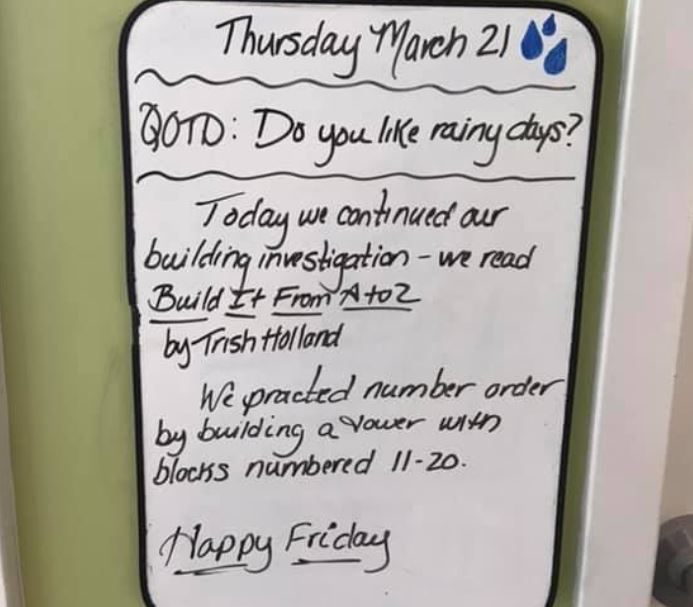 Thursday March 21
QOTD: Do you like rainy days?
Today we continued our
building investigation - we read
Build It From A to Z
by Trish Holland
We practed number order
by building a tower with
blocks numbered 11-20.
Happy Friday